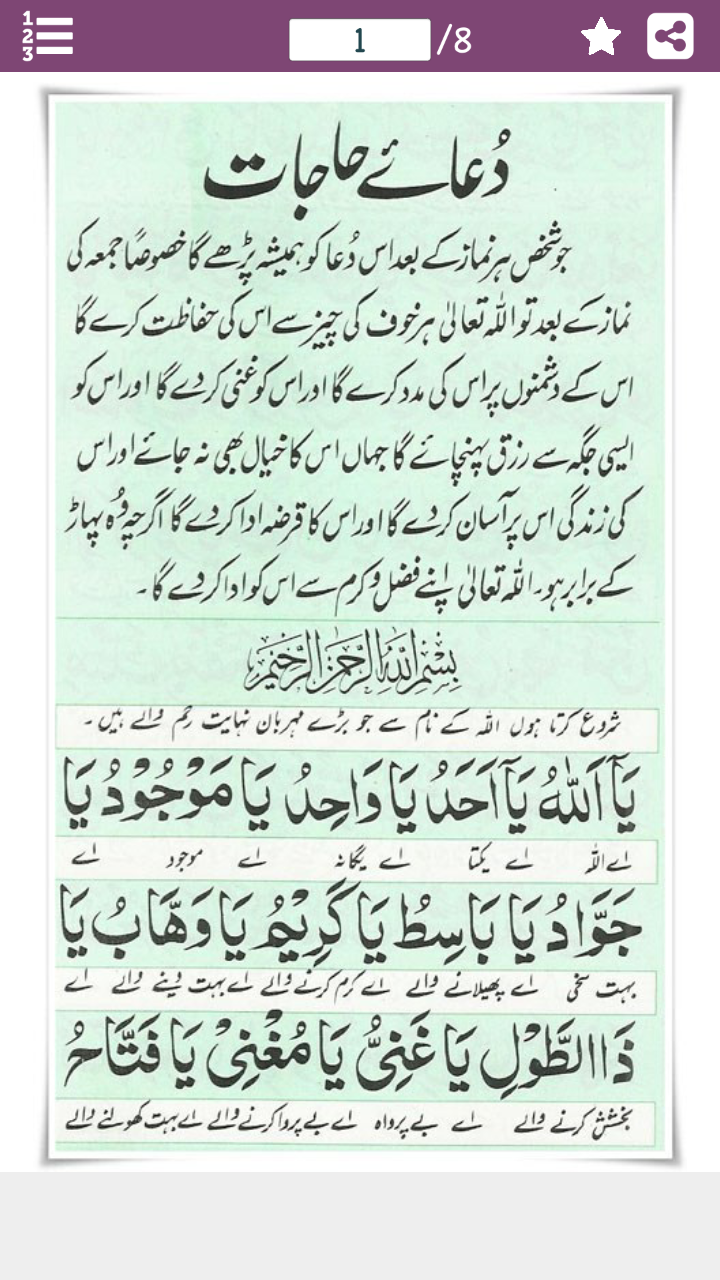 1 2 3
1 /8
دُعائے حاجات
جو شخص ہر نماز کے بعد اس دُعا کو ہمیشہ پڑھے گا خصوصًا جمعہ کی
نماز کے بعد تو اللہ تعالیٰ ہر خوف کی چیز سے اس کی حفاظت کرے گا
اس کے دشمنوں پر اس کی مدد کرے گا اور اس کو غنی کر دے گا اور اس کو
ایسی جگہ سے رزق پہنچائے گا جہاں اس کا خیال بھی نہ جائے اور اس
کی زندگی اس پر آسان کر دے گا اور اس کا قرضہ ادا کر دے گا اگرچہ وُہ پہاڑ
کے برابر ہو۔ اللہ تعالیٰ اپنے فضل و کرم سے اس کو ادا کر دے گا۔
بِسْمِ اللّٰهِ الرَّحْمٰنِ الرَّحِيْمِ
شروع کرتا ہوں اللہ کے نام سے جو بڑے مہربان نہایت رحم والے ہیں۔
يَآ اَللّٰهُ يَآ اَحَدُ يَا وَاحِدُ يَا مَوْجُوْدُ يَا
اے اللہ اے یکتا اے یگانہ اے موجود اے
جَوَّادُ يَا بَاسِطُ يَا كَرِيْمُ يَا وَهَّابُ يَا
بہت سخی اے پھیلانے والے اے کرم کرنے والے اے بہت دینے والے اے
ذَا الطَّوْلِ يَا غَنِيُّ يَا مُغْنِيْ يَا فَتَّاحُ
بخشش کرنے والے اے بے پرواہ اے بے پروا کرنے والے اے بہت کھولنے والے